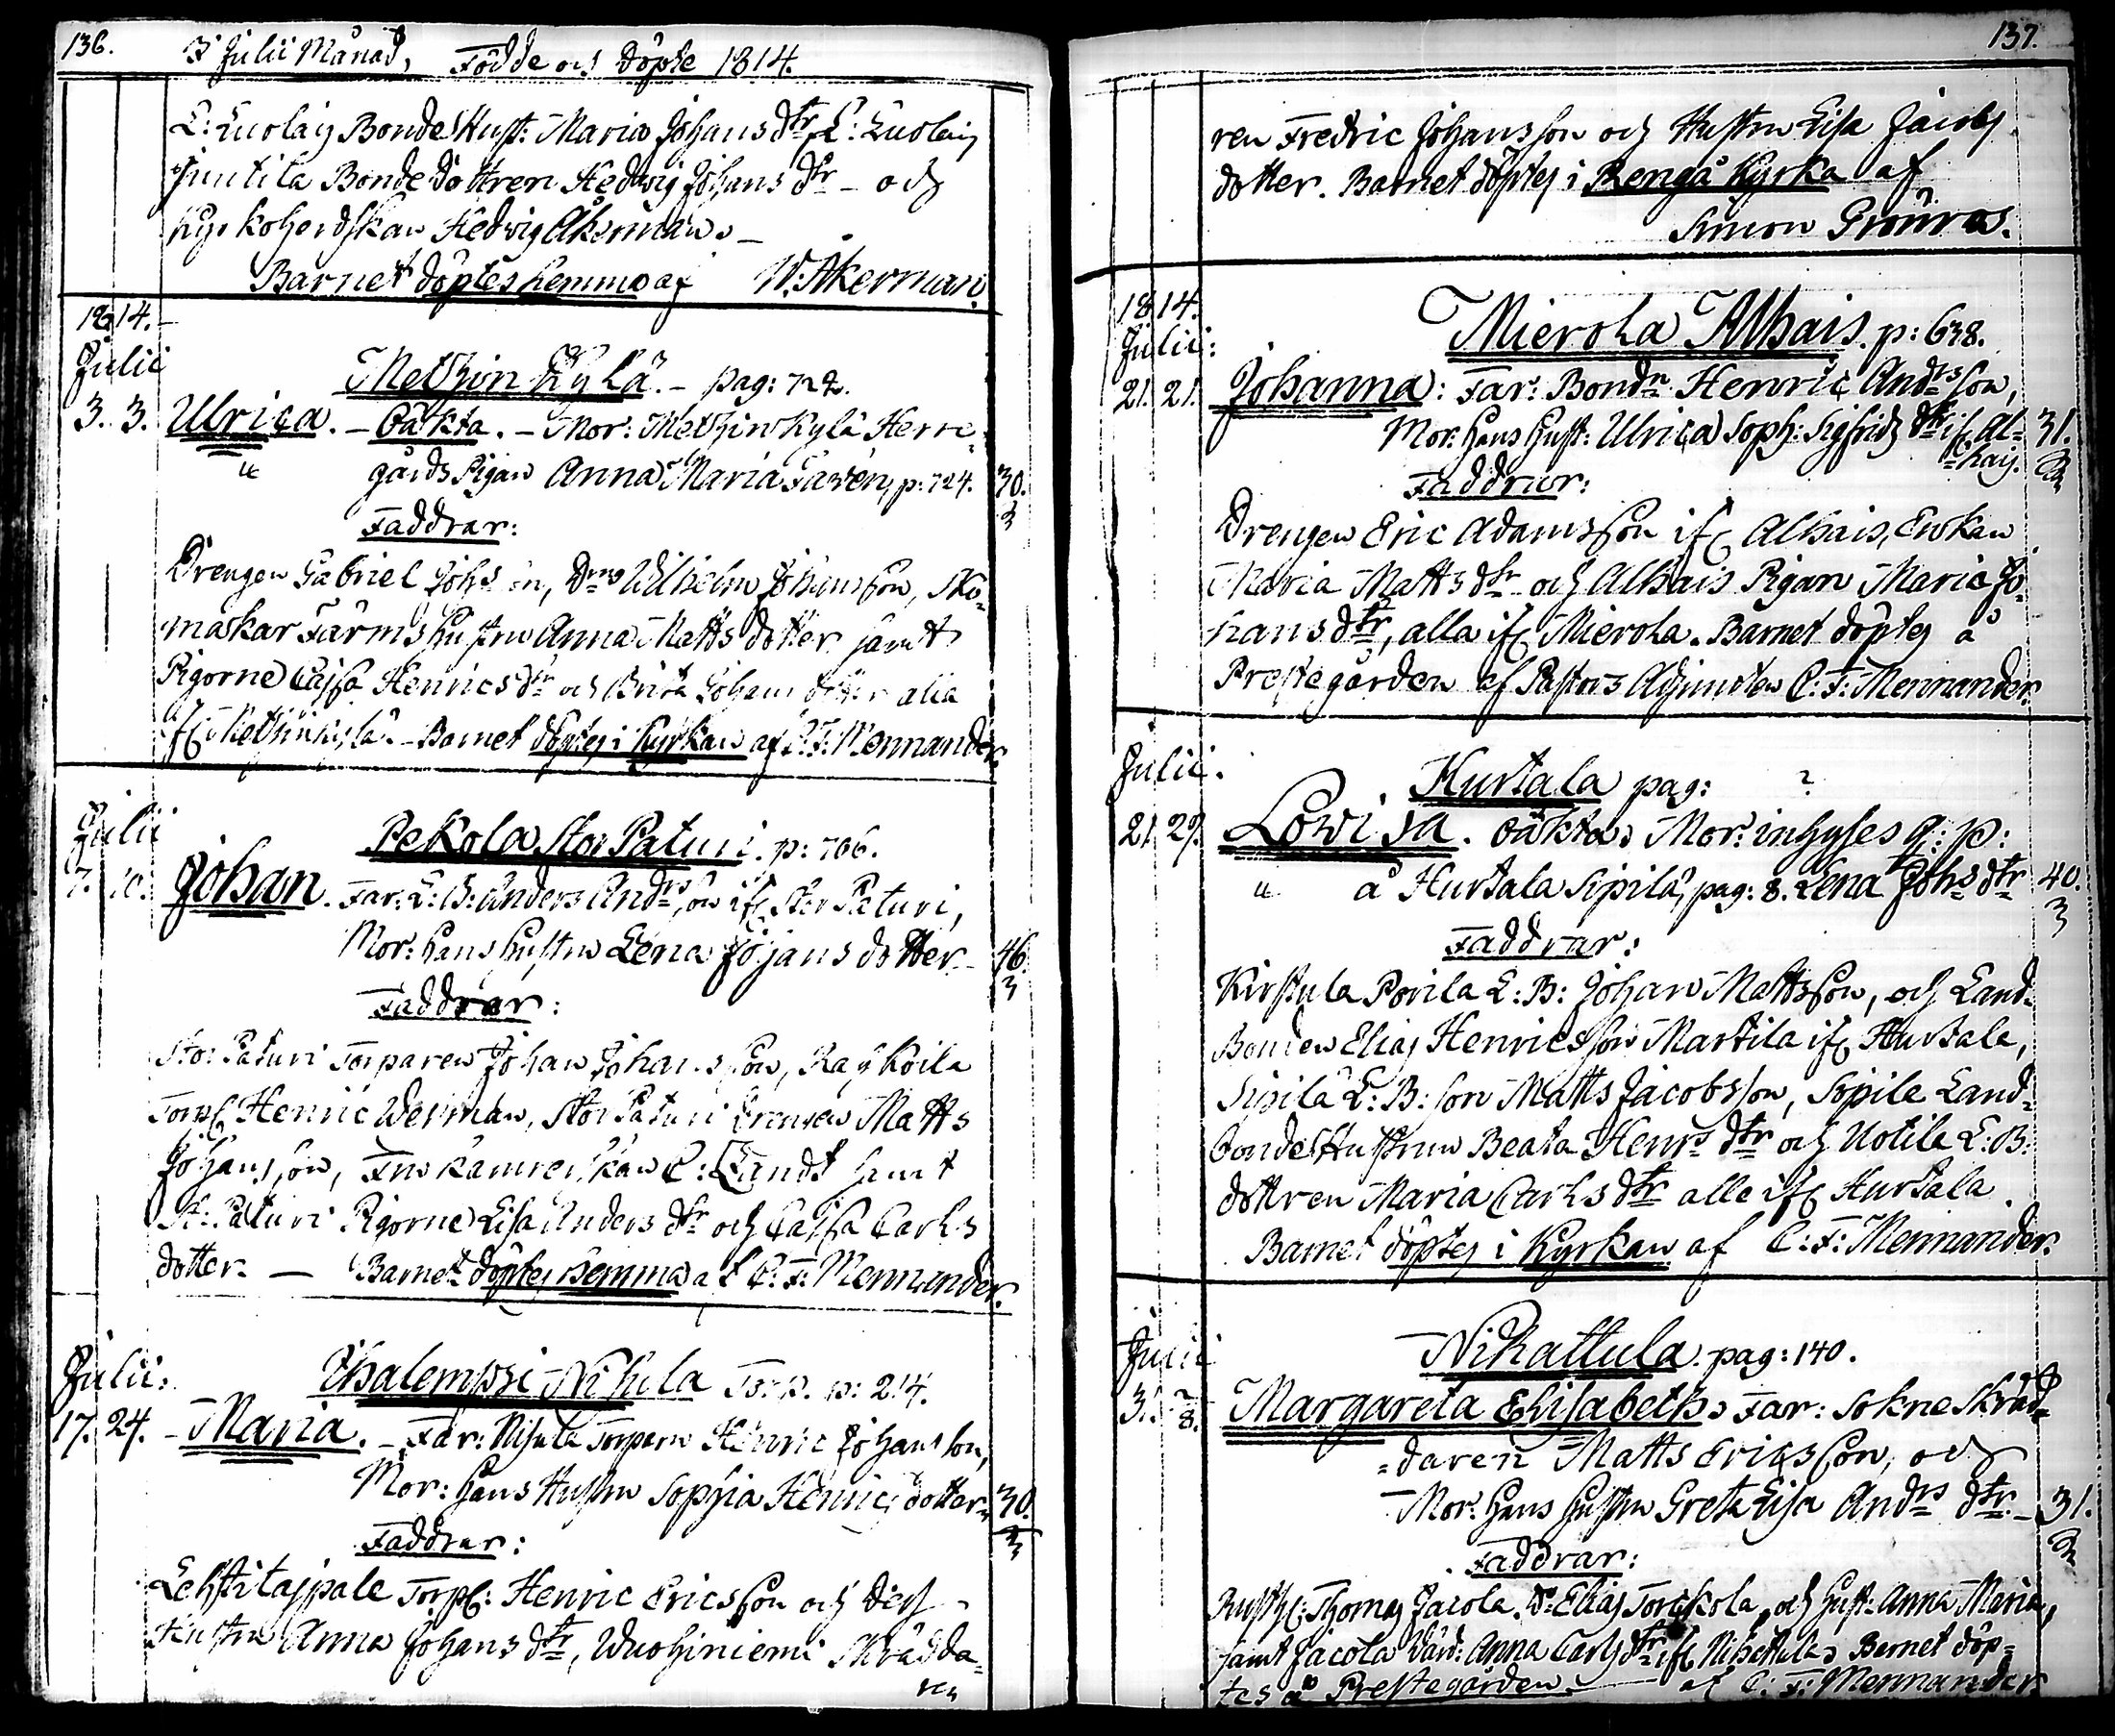 136.
I Julii Månad, Födde och Döpte 1814.
L: Luolais Bonde Hust: Maria Johans dtr, L: Luolais
Junttila Bonde Dottren Hedwig Johans dtr – och
Kyrkoherdskan Hedwig Åkerman. –
Barnet döptes hemma af W: Åkerman.
1814.
Julii
Methinkylä. – pag: 722.
3. 3. Ulrica. – Oäkta. – Mor: Methinkylä Herre
gårds Pigan Anna Maria Fawén, p: 724. 30.
3
Faddrar:
Drengen Gabriel Johsson, Drng Wilhelm Johansson, Sko
makar Färms Hustru Anna Matts dotter samt
Pigorne Cajsa Henrics dtr och Brita Johans dotter alla
ifr. Methinkylä. – Barnet döptes i Kyrkan af C: F: Mennander.
Julii
Pekola Stor Paturi. p: 706.
7. 10. Johan. Far: L: B: Anders Andrsson ifr. Stor Paturi,
Mor: hans Hustru Lena Johans dotter – 46.
3
Faddrar:
Stor Paturi Torparen Johan Johansson,
Torp. Henric Wesman, Stor Paturi Drengen Matts
Johansson, Fru C: Landt samt
St: Paturi Pigorne Lisa Anders dtr och Cajsa Carls
dotter. — Barnet döptes hemma af C: F: Mennander.
Julii:
Nihula Torp. p: 214.
17. 24. – Maria. – Far: Nihula Torparn Henric Johansson,
Mor: hans Hustru Sophia Henrics dotter 30.
3
Faddrar:
Torp: Henric Ericsson och dess
Hustru Anna Johans dtr, Wuohiniemi Skrädda
ren
137.
ren Fredric Johansson och Hustru Lisa Jacobs
dotter. Barnet döptes i Rengå Kyrka af
Simon Grönros.
1814.
Julii:
Mierola Alhais. p: 638.
21. 21. Johanna: Far: Bondn Henric Andrsson,
Mor: hans Hust: Ulrica Soph: Sigfrids dtr ifr. Al= 31.
=hais. 3
Faddrar:
Drengen Eric Adamsson ifr. Alhais, Enkan
Maria Matts dtr och Alhais Pigan Maria Jo
hans dtr, alla ifr. Mierola. Barnet döptes å
Prestegården af Pastors Adjuncten C: F: Mennander.
Julii.
Hurtala pag: ?
21. 29. Lowisa. Oäkta. Mor: inhyses q: p:
å Hurtala Sipilä, pag: 8. Lena Johs dtr 40.
3
Faddrar:
Kirstula Porila L: B: Johan Mattsson, och Land=
Bonden Elias Henricsson Martila ifr. Hurtala,
Sipilä L: B: son Matts Jacobsson, Sipilä Land=
bonde Hustrun Beata Henrs dtr och Uotila L: B:
dottren Maria Carls dtr alla ifr. Hurtala.
Barnet döptes i Kyrkan af C: F: Mennander.
Julii
Nihattula. pag: 140.
31. 8. Margareta Elisabeth. Far: Sokne Skräd=
=daren Matts Ericsson, och
Mor: hans Hustru Greta Lisa Andrs dtr. – 31.
3
Faddrar:
Rusth: Thomas Jacola, Do Elias och Hust: Anna Maria,
samt Jacola Wärd: Anna Carls dtr ifr. Nihattula. Barnet döp=
tes å Prestegården. — af C: F: Mennander.